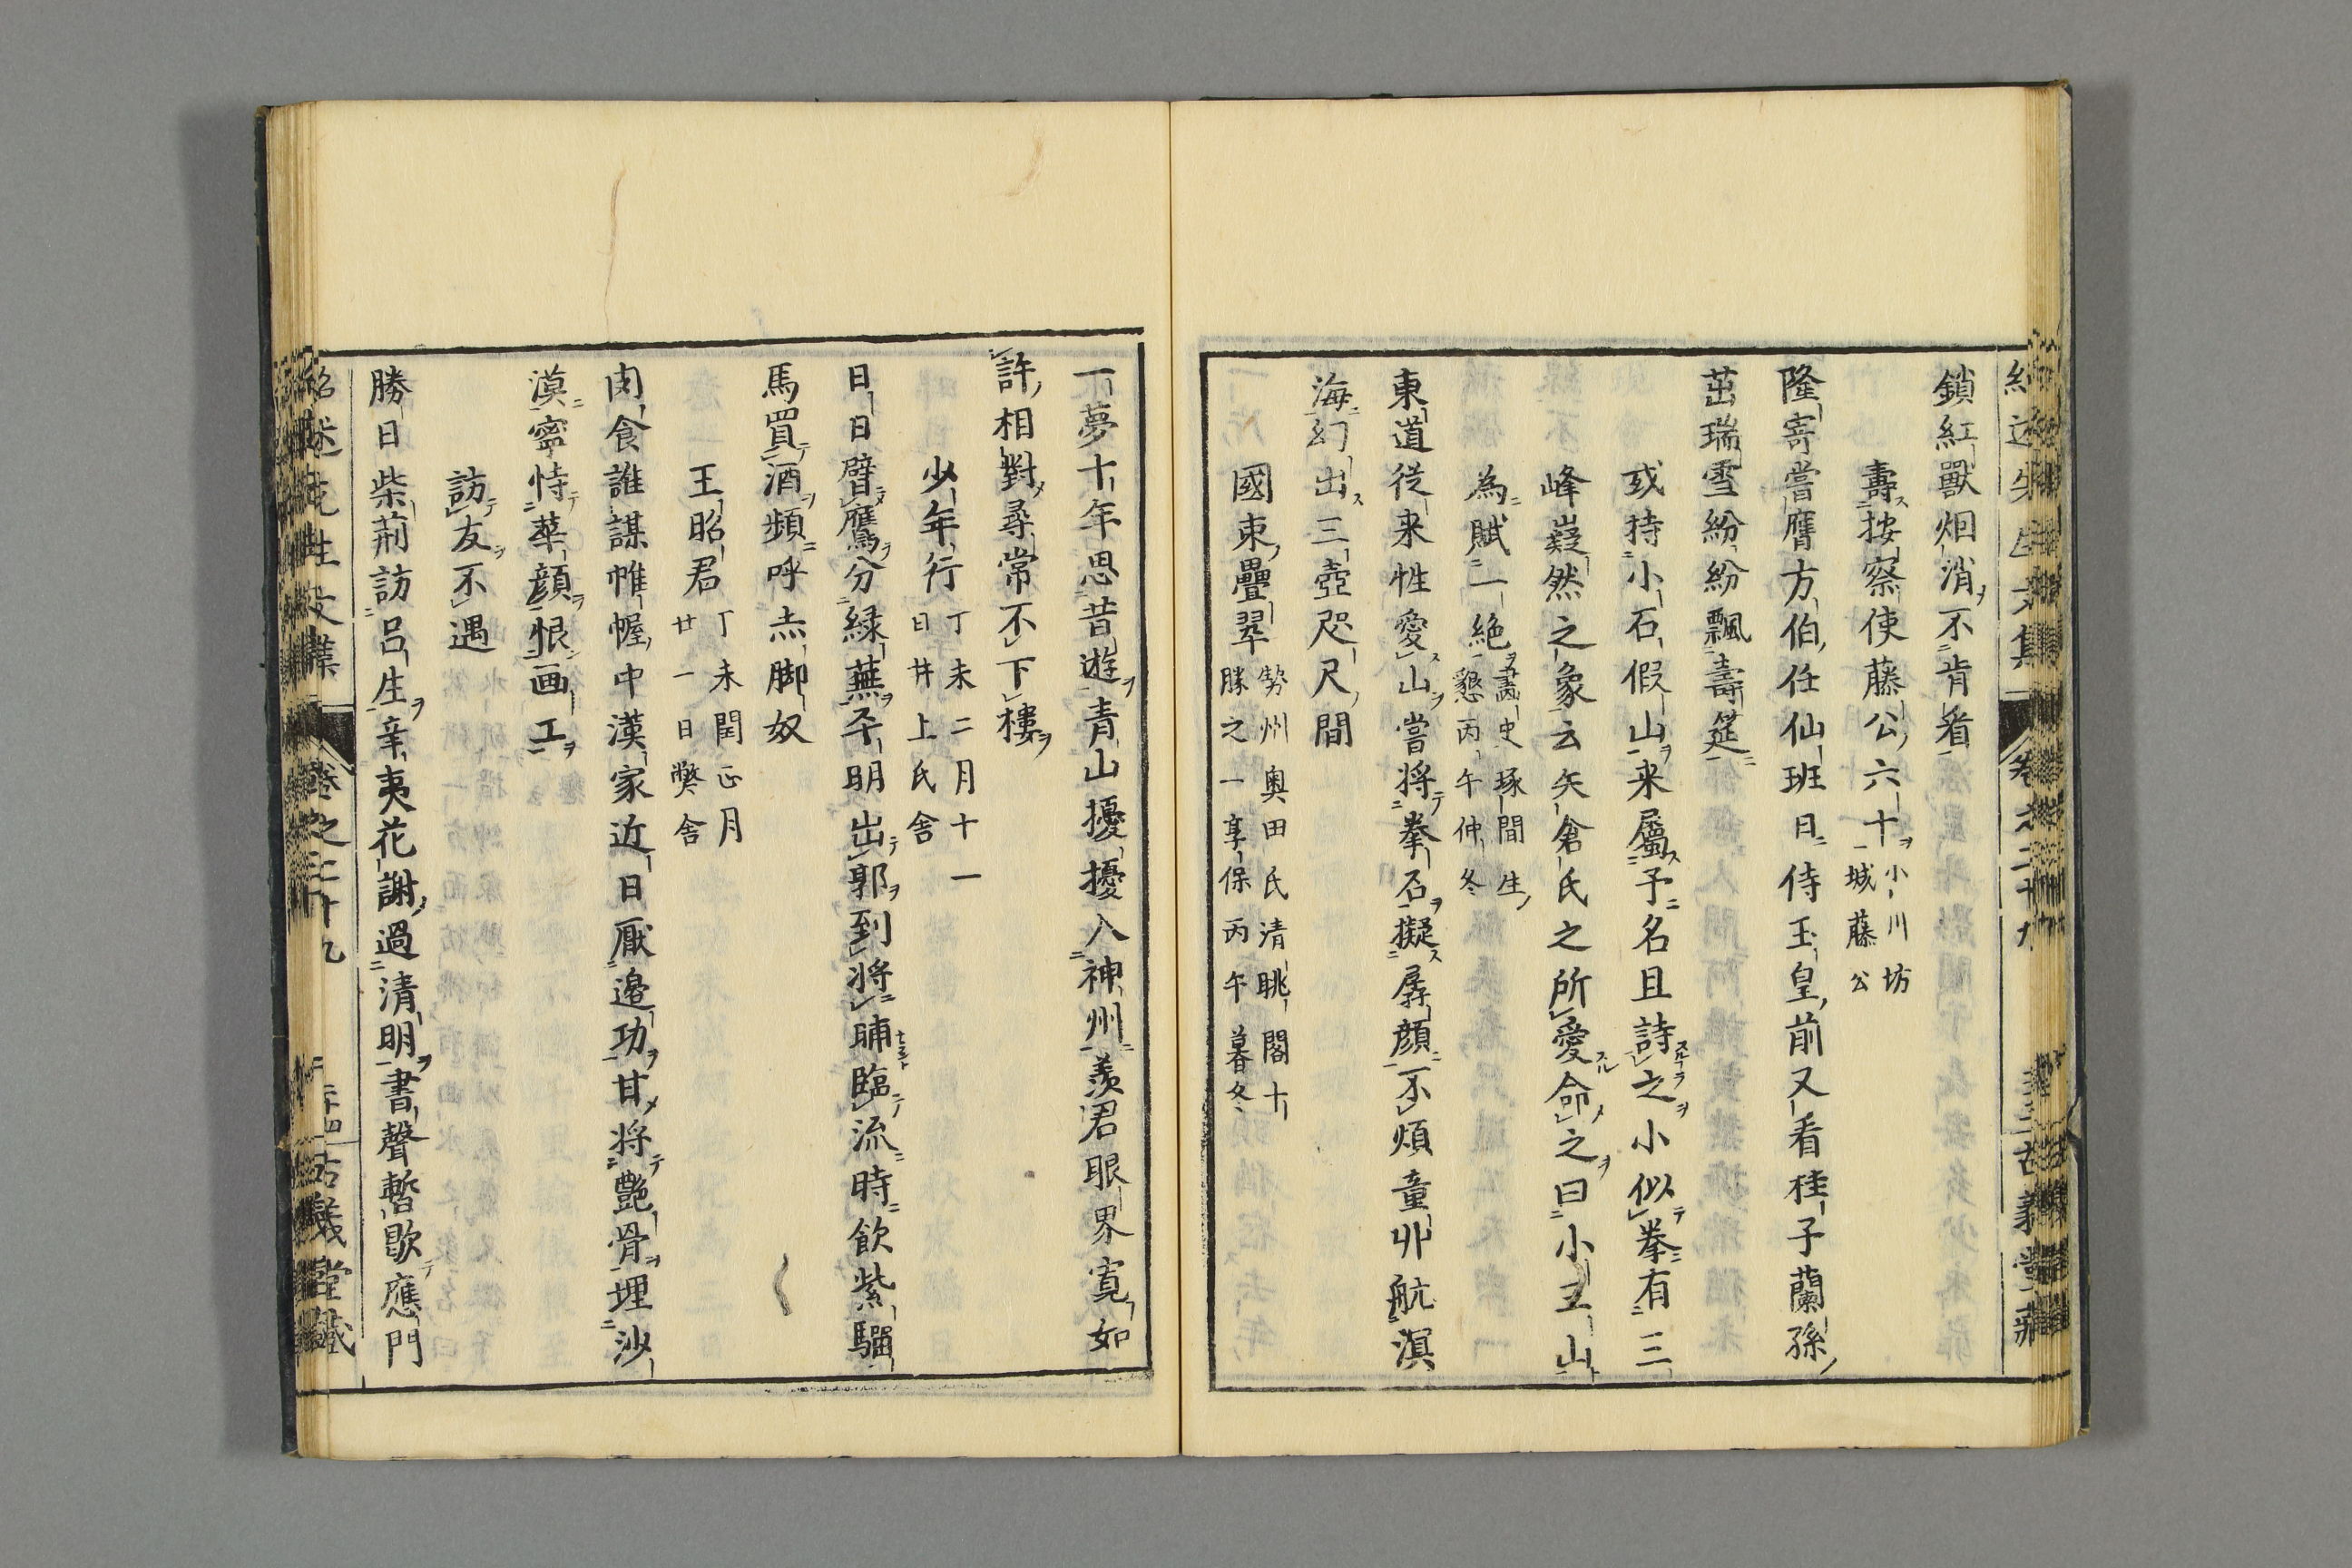 鎖紅獸炯消不肯看
壽按察使藤公六十 小川坊
城藤公
隆寄嘗膺方伯任仙班日侍玉皇前又看桂子蘭孫
茁瑞雪紛紛飄壽筵
或持小石假山来屬予名且詩之小似拳有三
峰嶷然之象云矢倉氏之所愛命之曰小玉山
為賦一絶 畫史琢間生
懇丙午仲冬
東道従来性愛山嘗将拳石擬孱顔不煩童丱航溟
海幻出三壺咫尺間
國東疊翠 勢州奥田氏清眺閣十
勝之一享保丙午暮冬
一夢十年思昔遊青山擾擾入神州羨君眼界寛如
許相對尋常不下樓
少年行 丁未二月十一
日井上氏舎
日日臂鷹分緑蕪平明出郭到将晡臨流時飲紫騮
馬買酒頻呼赤脚奴
王昭君 丁未閏正月
廿一日弊舎
肉食誰謀帷幄中漢家近日厭邉功甘将艷骨埋沙
漠寧恃華顔恨画工
訪友不遇
勝日柴荊訪呂生辛夷花謝過清明書聲暫歇應門
紹述先生文集 卷之二十九 古義堂藏